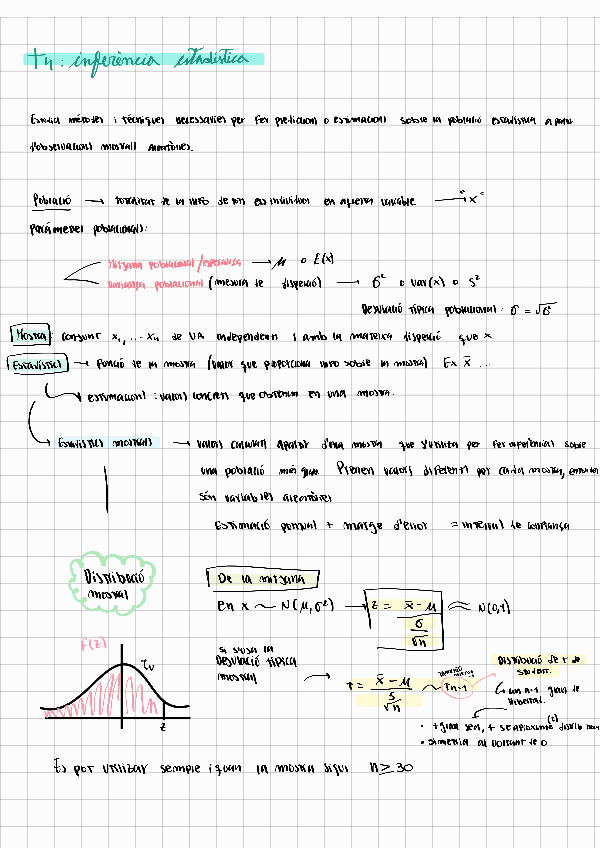 T4: inferència estadística
Estudia mètodes i tècniques necessaries per fer prediccions o estimacions sobre la població estadística a partir
d'observacions mostrals aleatòries.
Població → totalitat de la info de tots els individus en aquesta variable → "x"
Paràmetres poblacionals:
Mitjana poblacional/esperança → μ o E(x)
Variança poblacional (mesura de dispersió) → σ² o var(x) o S²
Desviació típica poblacional: σ = √σ²
Mostra: conjunt x₁, ... xₙ de VA independents i amb la mateixa dispersió que x
Estadístics → Funció de la mostra (valor que proporciona info sobre la mostra) Ex x̄ ...
estimacions: valors concrets que obtenim en una mostra.
Estadístics mostrals → valors calculats apartir d'una mostra que s'utilitza per fer inferències sobre
una població més gran. Prenen valors diferents per cada mostra,
són variables aleatòries
Estimació puntual + marge d'error = interval de confiança
Distribució
mostral
De la mitjana
en x ~ N(μ, σ²) → z = x̄ - μ / σ/√n ≈ N(0,1)
f(z)
z
si s'usa la
Desviació típica
mostral
→ t = x̄ - μ / s/√n ~ tn-1
Distribució de t de
Student.
amb n-1 graus de
llibertat.
• + gran sea n, + se aproxima distrib (z)
• simetria al voltant de 0
Es pot utilitzar sempre i quan la mostra sigui n ≥ 30